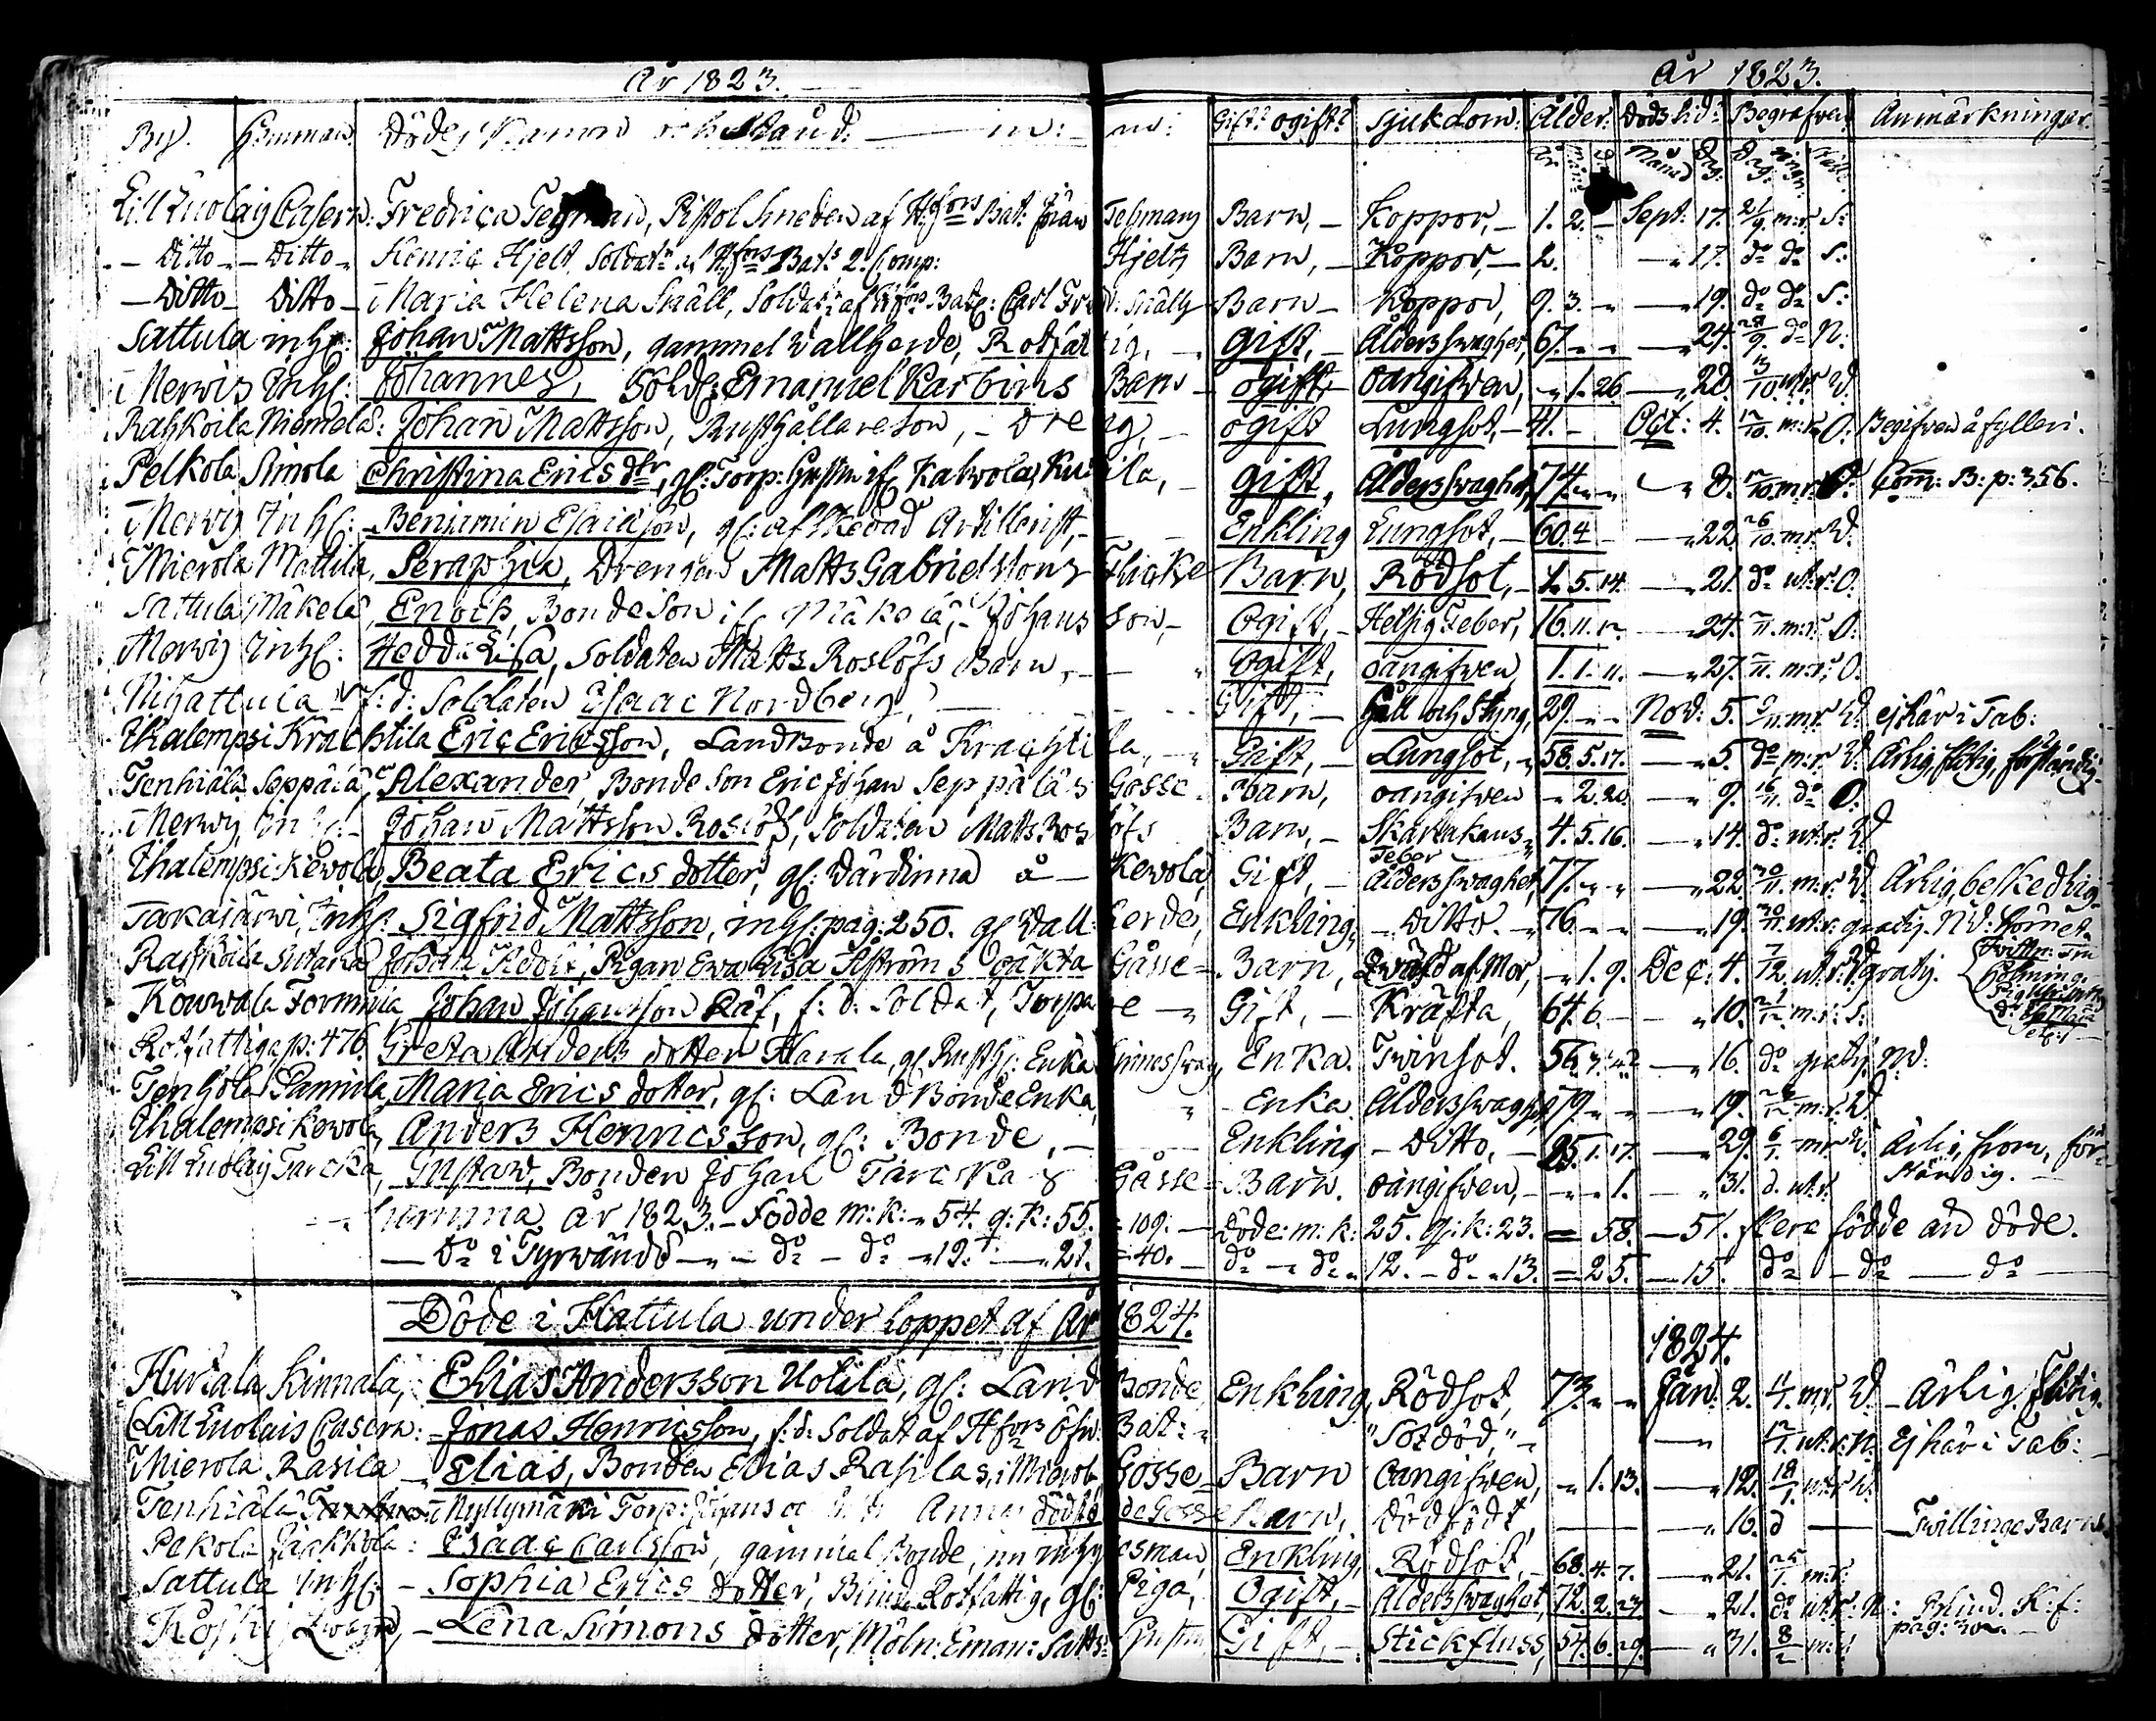 År 1823. År 1823.
By. Hemman. Dödes Namn och Stånd: Gift? ogift? Sjukdom: Ålder: Dödstid: Begrafven Anmärkningar.
Lill Luolais Casern: Fredrica Tegman, Pistol Smeden af H:fors Bat: Johan Tegmans Barn, – Koppor, – 1. 2. – Sept: 17. 21/9. m:r. S:
– Ditto – – Ditto – Henric Hjelt, Soldat:n af H:fors Bat:s 2. Comp: Hjelts Barn, – Koppor, – 2. 17. do do S:
– Ditto – Ditto – Maria Helena Snäll, Soldat:n af H:fors Bat: Carl Fred: Snälls Barn – Koppor, 9. 3. 19. do do S:
Sattula inh: Johan Mattsson, gammel Wallherde, Rotfattig, – Gift, – Ålderswaghet, 67. 24. 28/9. do N:
Merwis Inh: Johannes, Sold: Emanuel Karbins Barn – ogift, – oangifven, – 1. 26. 28. 13/10. ut:r. W.
Rahkoila Niemelä: Johan Mattsson, Rusthållareson, – Dreng, – ogift Lungsot, – 41. – Oct: 4. 12/10. m:r. O: Begifven å fylleri.
Pelkola Simola Christina Erics dtr, gl: Torp: Hustru if: Kakola, Kuila, – Gift, Ålderswaghet, 74. 8. 12/10. m:r. O: Com: B: p: 356.
Merwis Inh: – Benjamin Esaiasson, gl: afskedad Artillerist, – Enkling Lungsot, – 60. 4 22. 26/10. m:r. W.
Mierola Mattila, Seraphia, Drengen Matts Gabrielssons Flicka Barn, Rödsot, – 1. 5. 14. 21. do ut:r. O.
Sattula Mäkelä, Enoch, Bondeson if: Mäkelä, Johansson, – Ogift, – Hetsig Feber, 16. 11. 12. 24. 2/11. m:r. O:
Merwis Inh: Hedda Lisa, Soldaten Matts Roslöfs Barn, – Ogift, oangifven, 1. 1. 11. 27. 2/11. m:r. O.
Nihattula f: d: Soldaten Esaac Nordberg, Gift, – Håll och Styng, 29. Nov: 5. 9/11. m:r. W. ej här i Tab:
Ihalempsi Krachtila Eric Ericsson, Landbonde å Krachtila, – Gift, – Lungsot, 58. 5. 17. 5. do, m:r. W. Ärlig, flitig, förståndig.
Tenhiälä Seppälä, Alexander, Bonde Son Eric Johan Seppäläs Gosse Barn, oangifven – 2. 20. 9. 16/11. do O:
Merwis inh: – Johan Mattsson Roslöf, Soldaten Matts Roslöfs Barn, – Skarlakans Feber 4. 5. 16. 14. do ut:r. W
Ihalempsi Kewola, Beata Erics dotter, gl: Värdinna å – Kewola, Gift, – Ålderswaghet, 77. 22. 30/11. m:r. W. Ärlig, beskedlig
Takajärwi, Inh: Sigfrid Mattsson, inh: pag: 250. gl Wallherde, Enkling, – Ditto. – 76. 19. 30/11. ut:r. gratis. N.W:
Rahkoila Sutari Johan Fredric, Pigan Ewa Lisa Åströms oäkta Gåsse – Barn, Qwäfd af Mor, – 1. 9. Dec: 4. 7/12. ut:r. gratis.
Kouwala Tormänä, Johan Johansson Räf, f: d: Soldat, Torpare Gift, – Kräfta, 64. 6. – 10. 21/12. m:r. S:
Rotfattig p: 476. Greta Anders dotter Havala, gl Rusth: Enka Sinnesswag, Enka. Twinsot. 56. 16. do gratis. N.W.
Tenhola Pamila, Maria Erics dotter, gl: Land Bonde Enka, Enka Ålderswaghet, 79. 19. 26/12. m:r. W
Ihalempsi Kewola, Anders Henricsson, gl: Bonde, – Enkling – Ditto, – 85. 1. 17. 29. 6/1. m:r. W. Ärlig, from, förståndig.
Lill Luolais Tarcka, Gustav, Bonden Johan Tarckas Gåsse – Barn. oangifven, – 1. 31. d. ut:r.
Summa år 1823. – Födde m: k: – 54. q: k: 55. = 109. – Döde: m: k: 25. q: k: 23. = 58. – 51. flere födde än döde.
– do i Tyrwändö – do – do – 19. – 21. = 40. – do – do 12. – do – 13. = 25. – 15. do – do – do
Döde i Hattula under loppet af År 1824.
1824.
Hurtala Kinnala, Elias Andersson Uotila, gl: Land Bonde Enkling, Rödsot, 73. Jan: 2. 4/1. m:r. W. – Ärlig, flitig.
Lill Luolais Casern: – Jonas Henricsson, f: d: Soldat af H:fors Bat: "Sotdöd," 12/1. ut:r. N. Ej här i Tab:
Mierola Rasila – Elias, Bonden Elias Rasilas, i Mierola Gosse – Barn Oangifven, – 1. 13. 12. 18/1. ut:r. W.
Tenhiälä Myllymäki Torp: Anna dödfödde Gosse Barn, Dödfödt, 16. d – Twillinge Barn
Pekola Jackola: Isaac Carlsson, gammal Bonde, nu inhysesman Enkling, Rödsot, 68. 4. 7. 21. 25/1. m:r.
Sattula Inh: – Sophia Erics dotter, Blind Rotfattig, gl: Piga, Ogift, – Ålderswaghet, 72. 2. 23. 21. do ut:r. N: Blind. K: f: pag:
Koski Qwarn, – Lena Simons dotter, Möln: Eman: Hustru Gift, – Stickfluss, 54. 6. 29. 31. 8/2